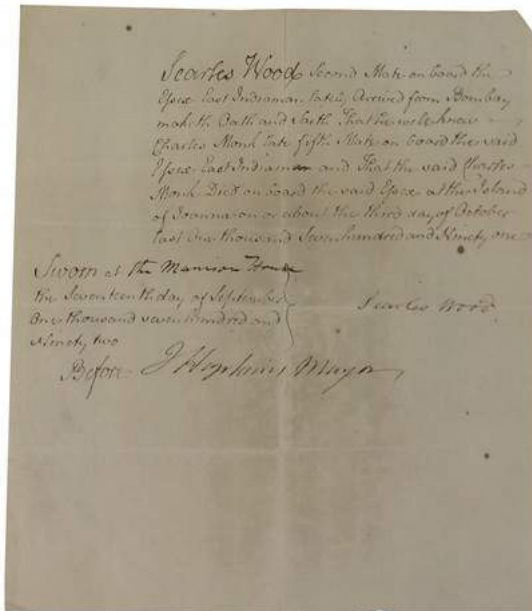 Searles Wood Second Mate on board the
Essex East Indiaman lately Arrived from Bombay
maketh Oath and Saith That he well knew
Charles Monk late fifth Mate on board the said
Essex East Indiaman and That the said Charles
Monk Died on board the said Essex at the Island
of Joanna on or about the third day of October
last One thousand Seven hundred and Ninety one
Sworn at the Mansion House
the Seventeenth day of September
One thousand seven hundred and
Ninety two
Searles Wood
Before J Hopkins Mayor